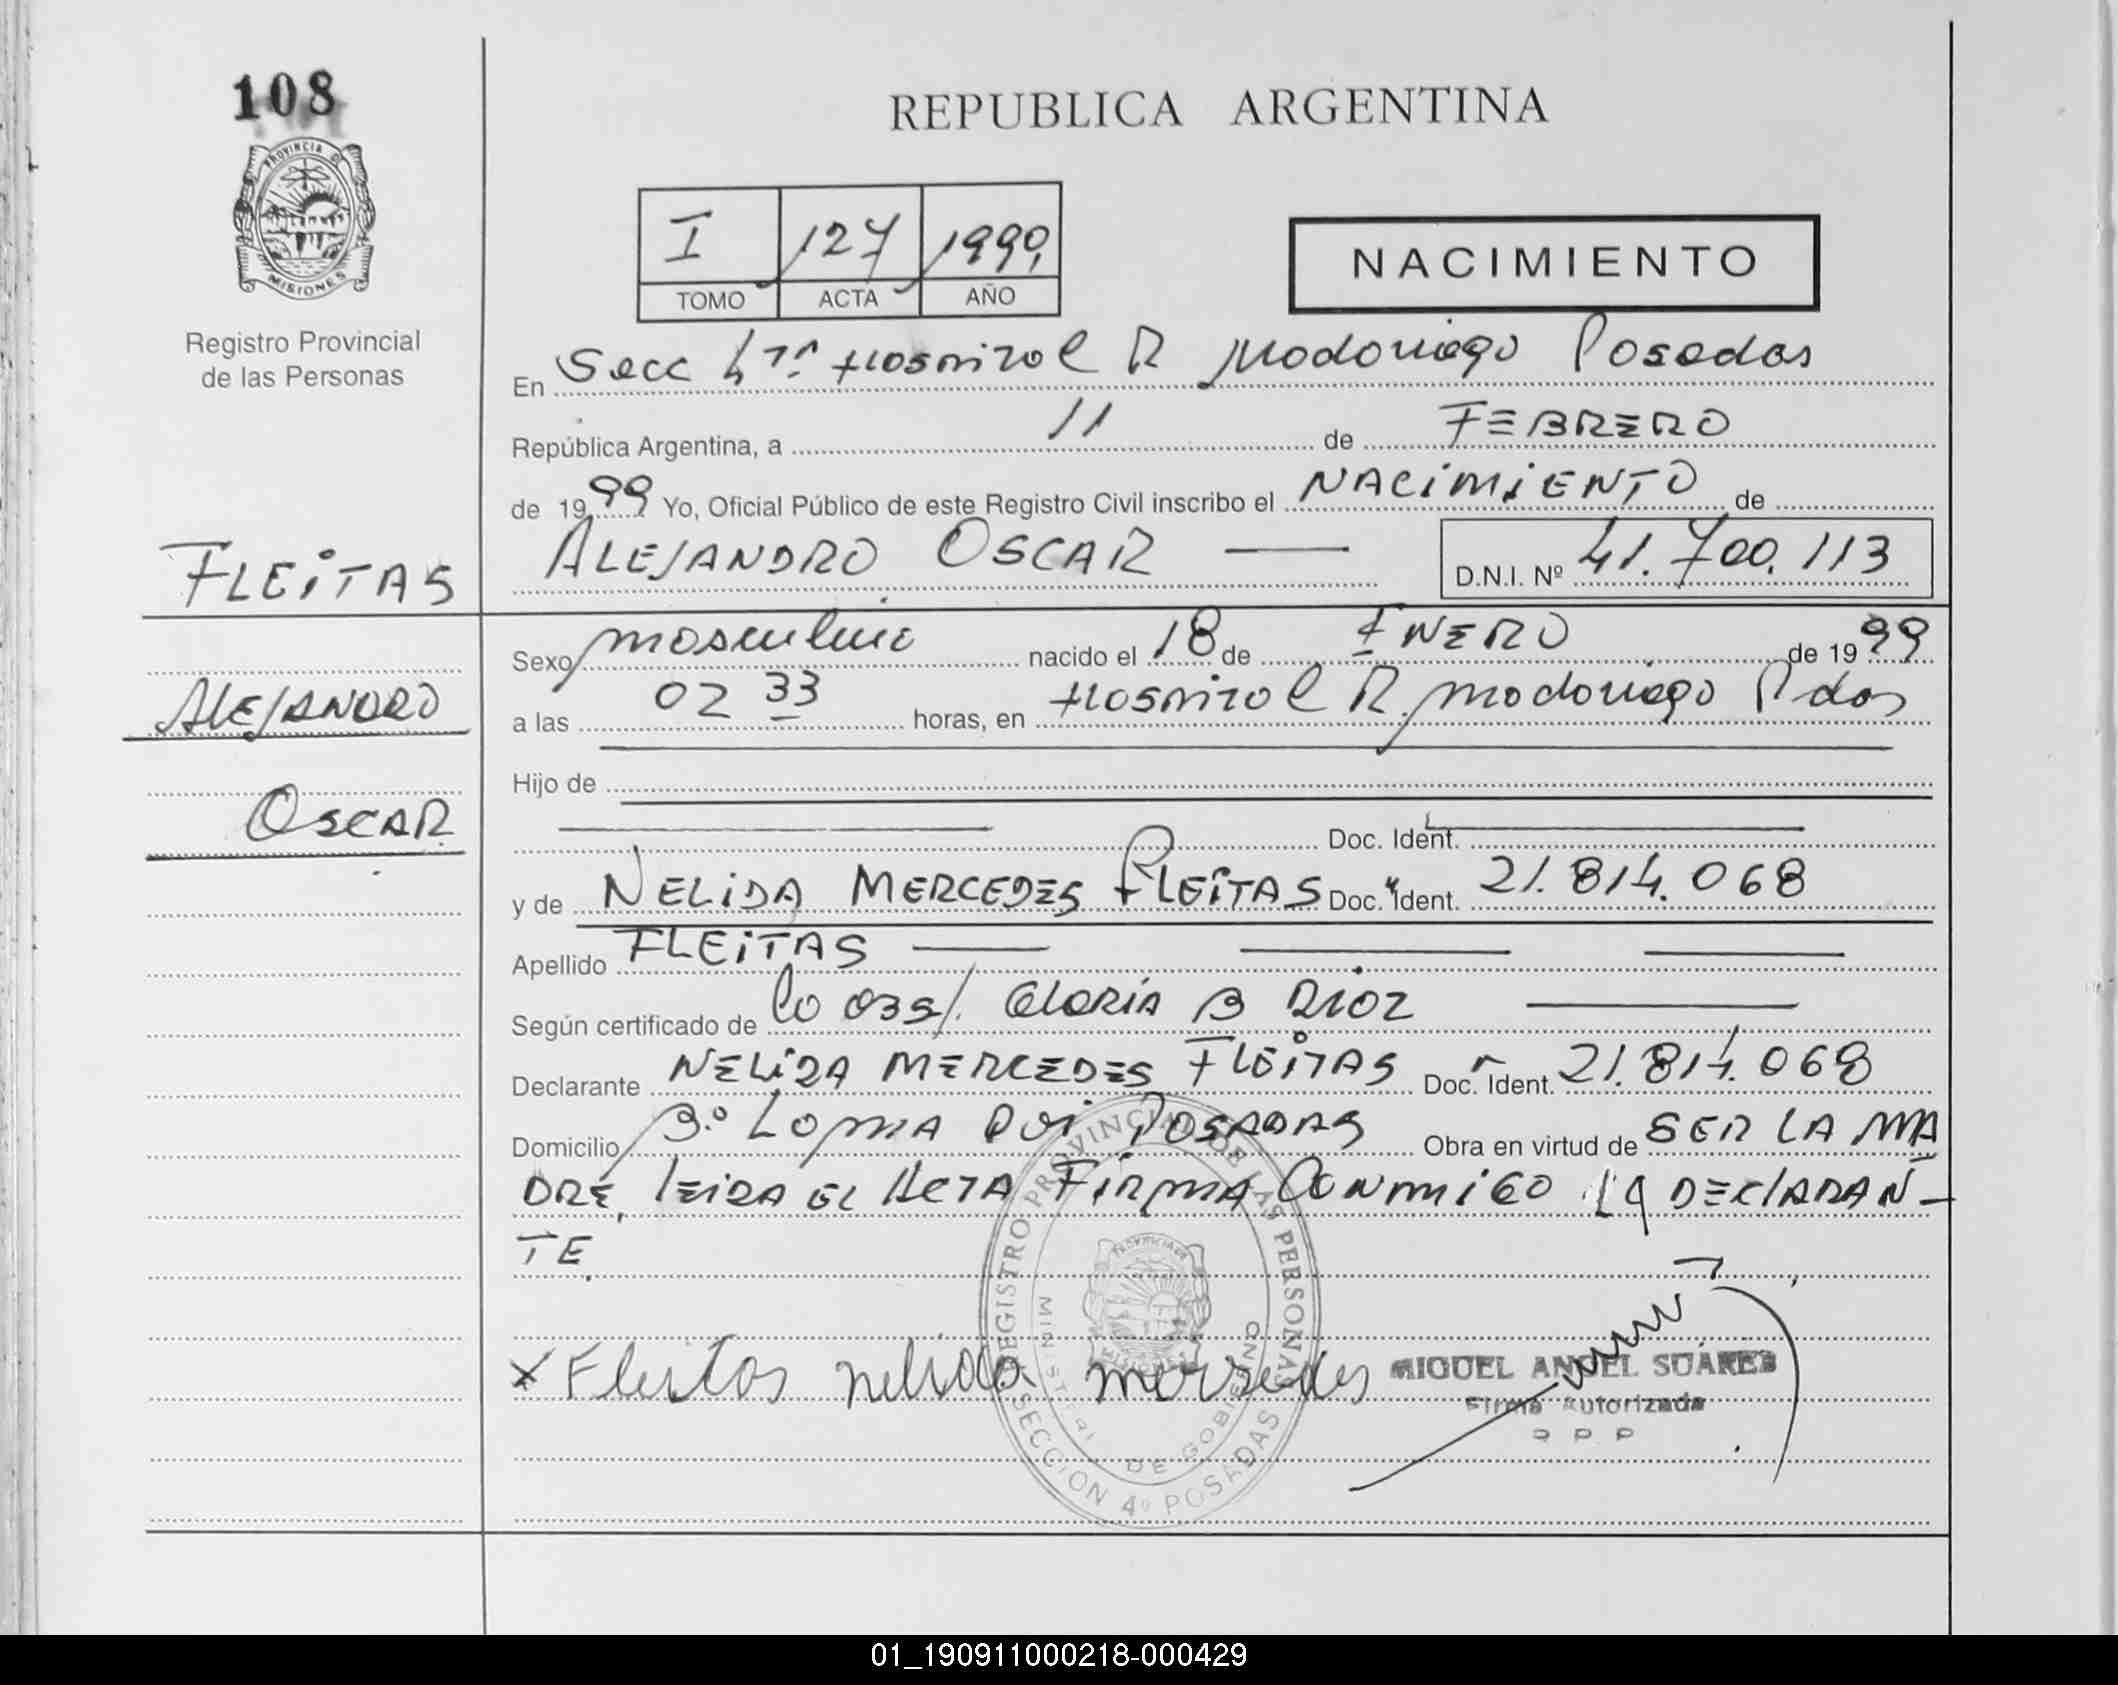 108
PROVINCIA DE
MISIONES
Registro Provincial
de las Personas
REPUBLICA ARGENTINA
I 127 1999
TOMO ACTA AÑO
NACIMIENTO
En Secc 4ta. Hospital R Madariaga Posadas
República Argentina, a 11 de FEBRERO
de 1999 Yo, Oficial Público de este Registro Civil inscribo el NACIMIENTO de
FLEITAS
ALEJANDRO OSCAR — D.N.I. Nº 41.700.113
Sexo masculino nacido el 18 de ENERO de 1999
ALEJANDRO
a las 02 33 horas, en Hospital R. Madariaga Pdas
Hijo de
OSCAR
Doc. Ident.
y de NELIDA MERCEDES FLEITAS Doc. Ident. 21.814.068
Apellido FLEITAS
Según certificado de GLORIA B DIAZ
Declarante NELIDA MERCEDES FLEITAS Doc. Ident. 21.814.068
Domicilio POSADAS Obra en virtud de SER LA MA
DRE, LEIDA EL ACTA FIRMA CONMIGO LA DECLARAN-
TE.
x Fleitas nelida mersedes
MIGUEL ANGEL SUARES
Firma Autorizada
R P P
REGISTRO PROVINCIAL DE LAS PERSONAS
MINISTERIO DE GOBIERNO
SECCION 4º POSADAS
01_190911000218-000429